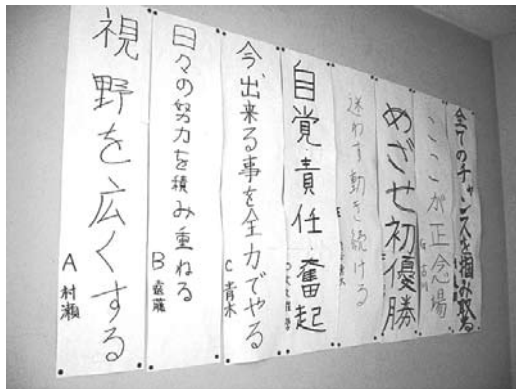 全てのチャンスを掴み取る
ここが正念場
めざせ初優勝
迷わず動き続ける
自覚・責任・奮起
今、出来る事を全力でやる
C 青木
日々の努力を積み重ねる
B 遠藤
視野を広くする
A 村瀬